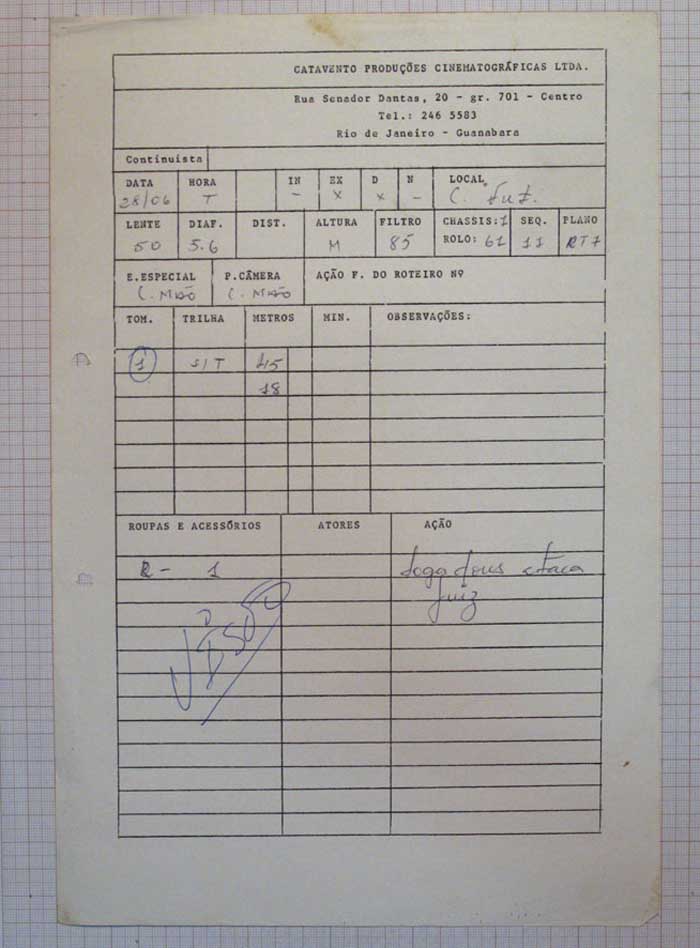 CATAVENTO PRODUÇÕES CINEMATOGRÁFICAS LTDA.
Rua Senador Dantas, 20 - gr. 701 - Centro
Tel.: 246 5583
Rio de Janeiro - Guanabara
Continuista
DATA HORA IN EX D N LOCAL
28/06 T - X X - C. Fut.
LENTE DIAF. DIST. ALTURA FILTRO CHASSIS: 1 SEQ. PLANO
50 5.6 M 85 ROLO: 61 11 RT7
E.ESPECIAL P.CÂMERA AÇÃO F. DO ROTEIRO Nº
C. MÃO C. MÃO
TOM. TRILHA METROS MIN. OBSERVAÇÕES:
1 S/T 45
18
ROUPAS E ACESSÓRIOS ATORES AÇÃO
R - 1 ataca
juiz